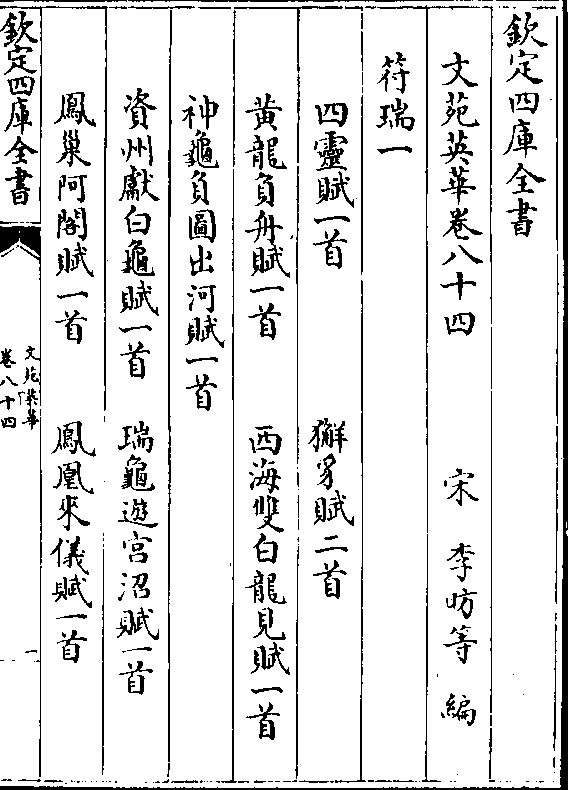 欽定四庫全書
文苑英華卷八十四
宋 李昉等 編
符瑞一
四靈賦一首 獬豸賦二首
黃龍負舟賦一首 西海雙白龍見賦一首
神龜負圖出河賦一首
資州獻白龜賦一首 瑞龜遊宮沼賦一首
鳳巢阿閣賦一首 鳳凰來儀賦一首
欽定四庫全書
文苑英華
卷八十四
一